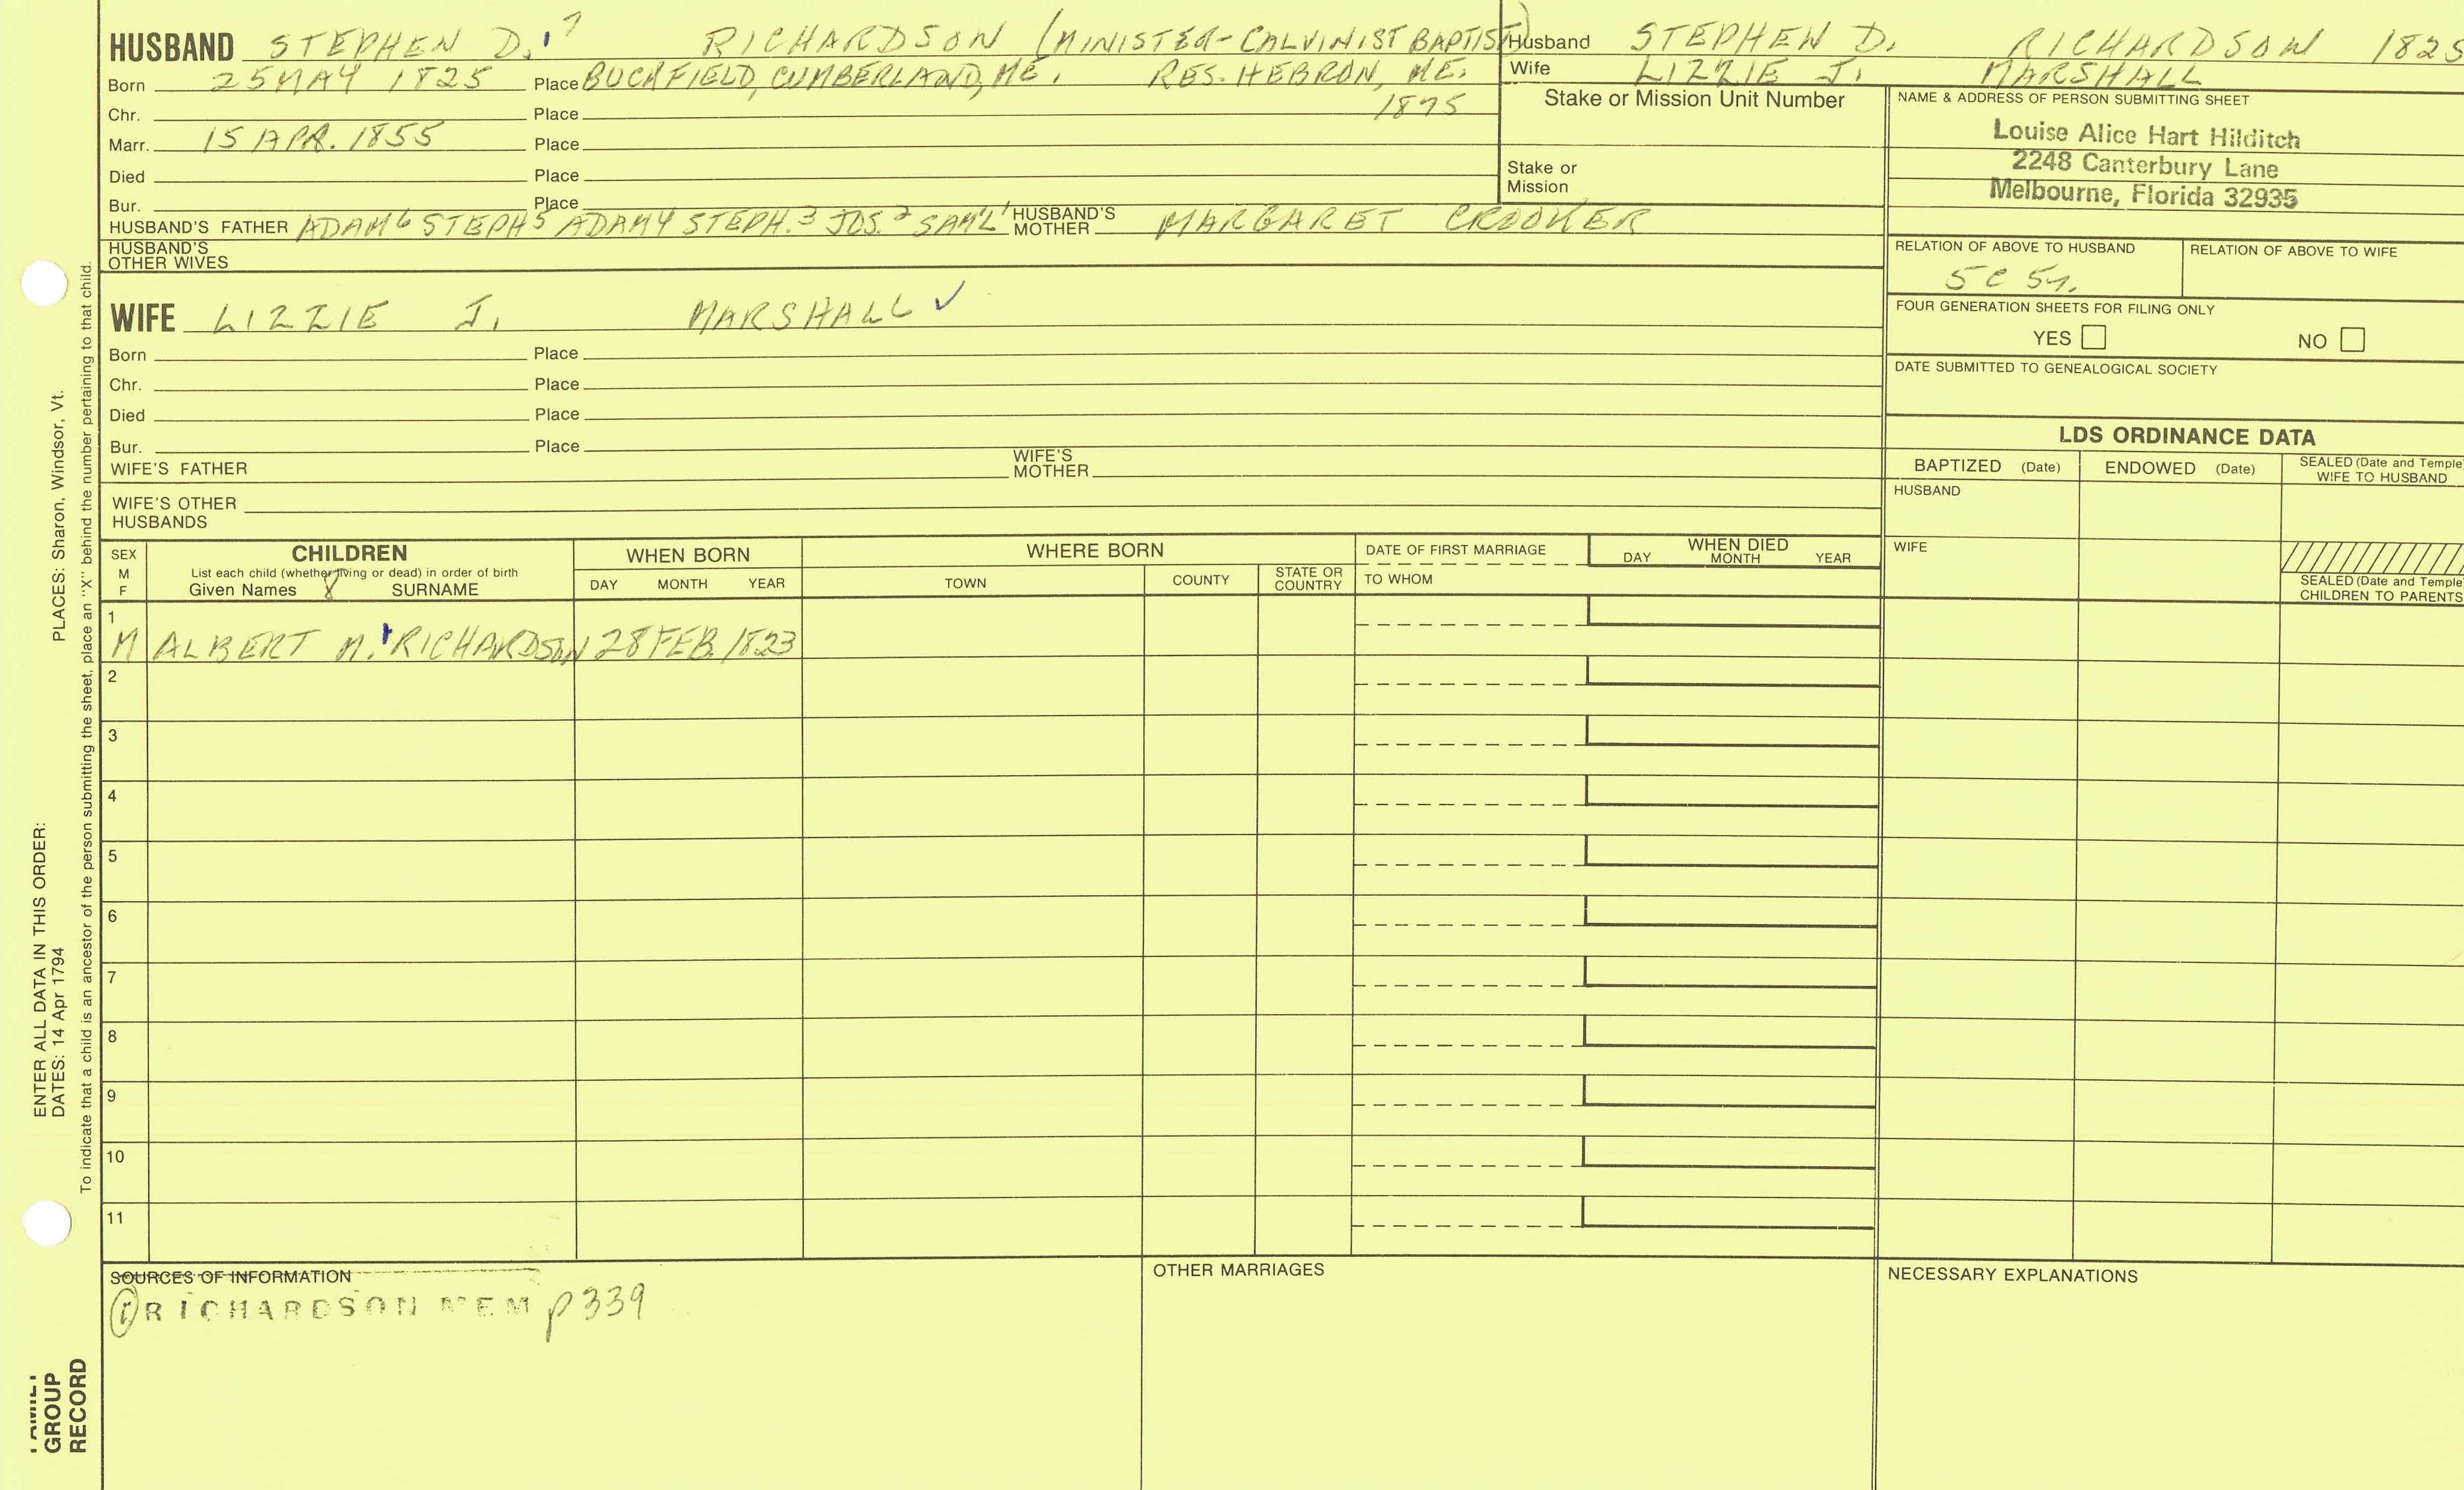 HUSBAND STEPHEN D.7 RICHARDSON (MINISTER-CALVINIST BAPTIST)
Born 25 MAY 1825 Place BUCKFIELD, CUMBERLAND, ME. RES. HEBRON, ME.
Chr. Place 1875
Marr. 15 APR. 1855 Place
Died Place
Bur. Place
HUSBAND'S FATHER ADAM6 STEPH5 ADAM4 STEPH.3 JOS.2 SAM'L1 HUSBAND'S MOTHER MARGARET CROOKER
HUSBAND'S
OTHER WIVES
Husband STEPHEN D. RICHARDSON 1825
Wife LIZZIE J. MARSHALL
Stake or Mission Unit Number
Stake or
Mission
NAME & ADDRESS OF PERSON SUBMITTING SHEET
Louise Alice Hart Hilditch
2248 Canterbury Lane
Melbourne, Florida 32935
RELATION OF ABOVE TO HUSBAND RELATION OF ABOVE TO WIFE
5C
FOUR GENERATION SHEETS FOR FILING ONLY
YES NO
DATE SUBMITTED TO GENEALOGICAL SOCIETY
WIFE LIZZIE J. MARSHALL ✓
Born Place
Chr. Place
Died Place
Bur. Place
WIFE'S FATHER WIFE'S MOTHER
WIFE'S OTHER
HUSBANDS
LDS ORDINANCE DATA
BAPTIZED (Date) ENDOWED (Date) SEALED (Date and Temple) WIFE TO HUSBAND
HUSBAND
WIFE
SEALED (Date and Temple)
CHILDREN TO PARENTS
SEX
M
F
CHILDREN
List each child (whether living or dead) in order of birth
Given Names X SURNAME
WHEN BORN
DAY MONTH YEAR
WHERE BORN
TOWN COUNTY STATE OR COUNTRY
DATE OF FIRST MARRIAGE
TO WHOM
WHEN DIED
DAY MONTH YEAR
1
M ALBERT M. RICHARDSON 28 FEB. 1823
2
3
4
5
6
7
8
9
10
11
SOURCES OF INFORMATION
① RICHARDSON MEM p339
OTHER MARRIAGES
NECESSARY EXPLANATIONS
ENTER ALL DATA IN THIS ORDER:
DATES: 14 Apr 1794 PLACES: Sharon, Windsor, Vt.
To indicate that a child is an ancestor of the person submitting the sheet, place an "X" behind the number pertaining to that child.
FAMILY
GROUP
RECORD